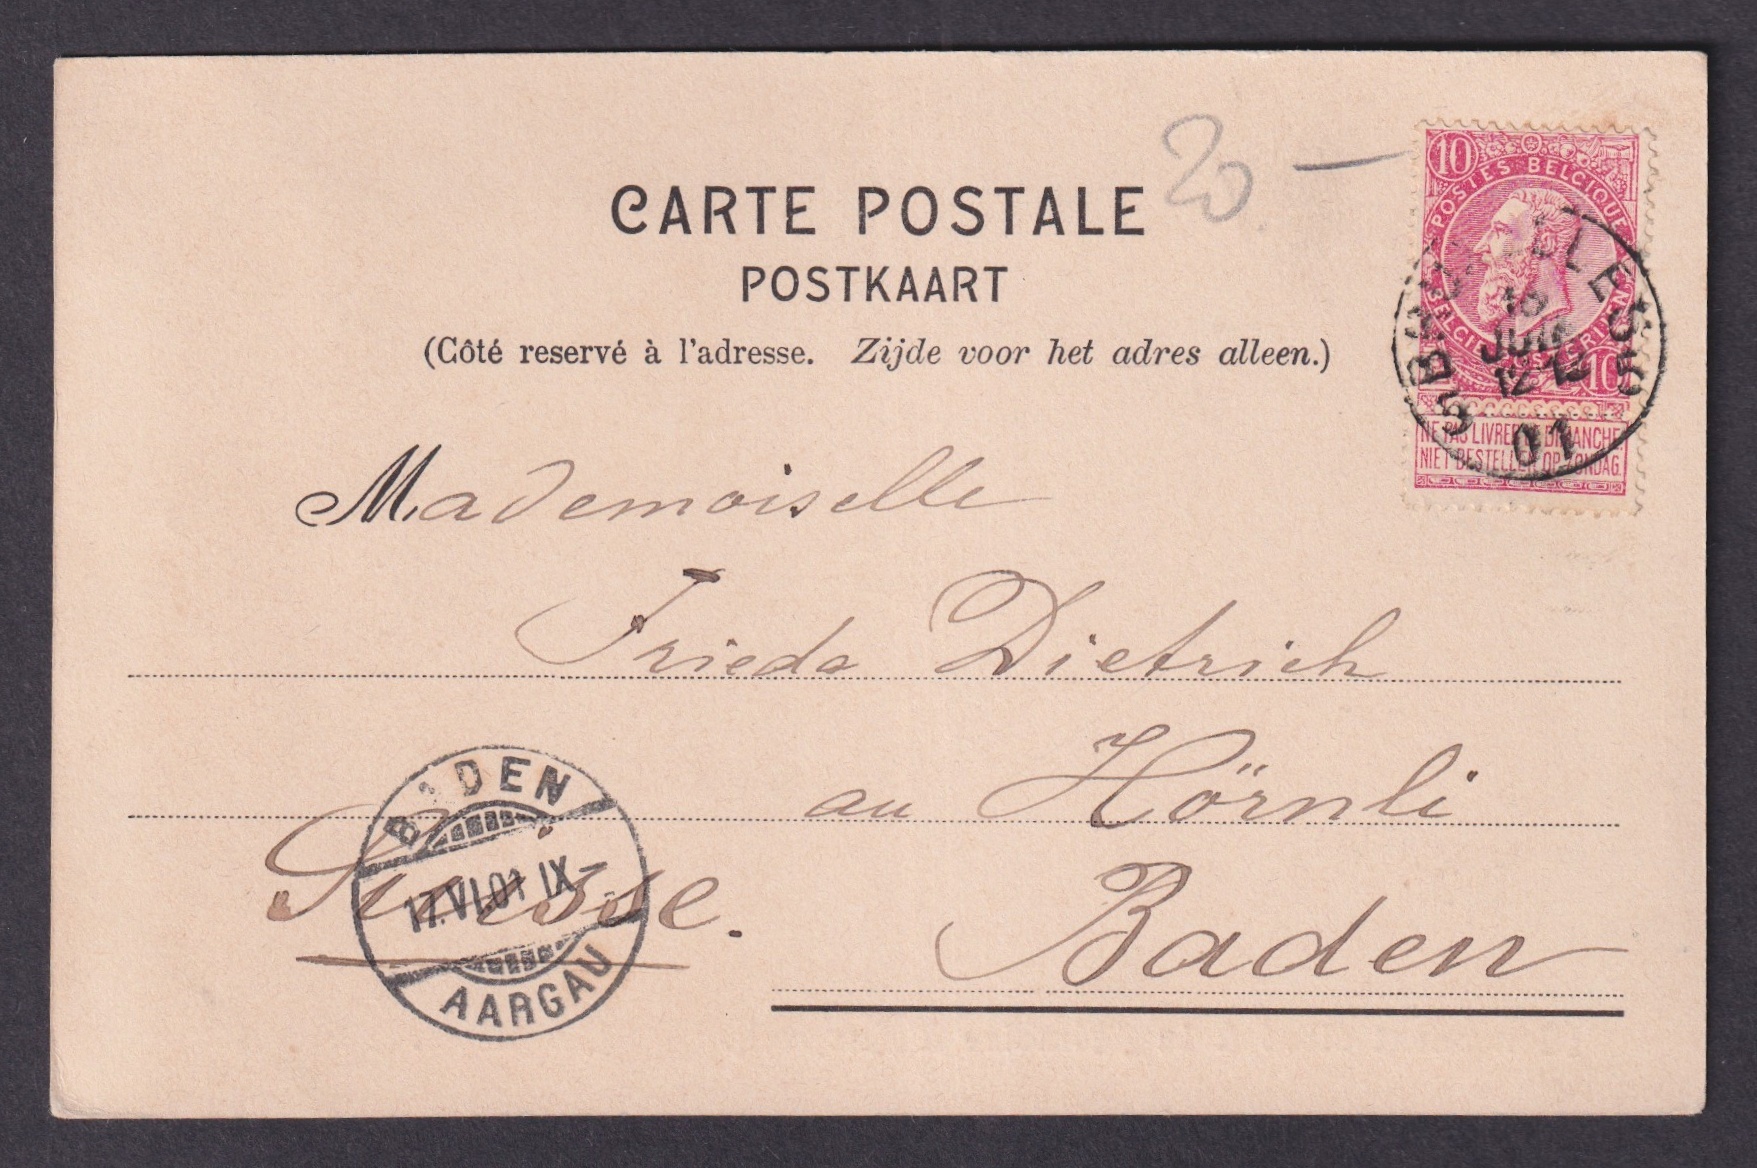 20 —
CARTE POSTALE
POSTKAART
(Côté reservé à l'adresse. Zijde voor het adres alleen.)
10
POSTES BELGIQUE
10
NE PAS LIVRER LE DIMANCHE
NIET BESTELLEN OP ZONDAG.
JUIN
12
01
Mademoiselle
Frieda Dietrich
au Hörnli
Suisse.
Baden
BADEN
17.VI.01 IX-
AARGAU